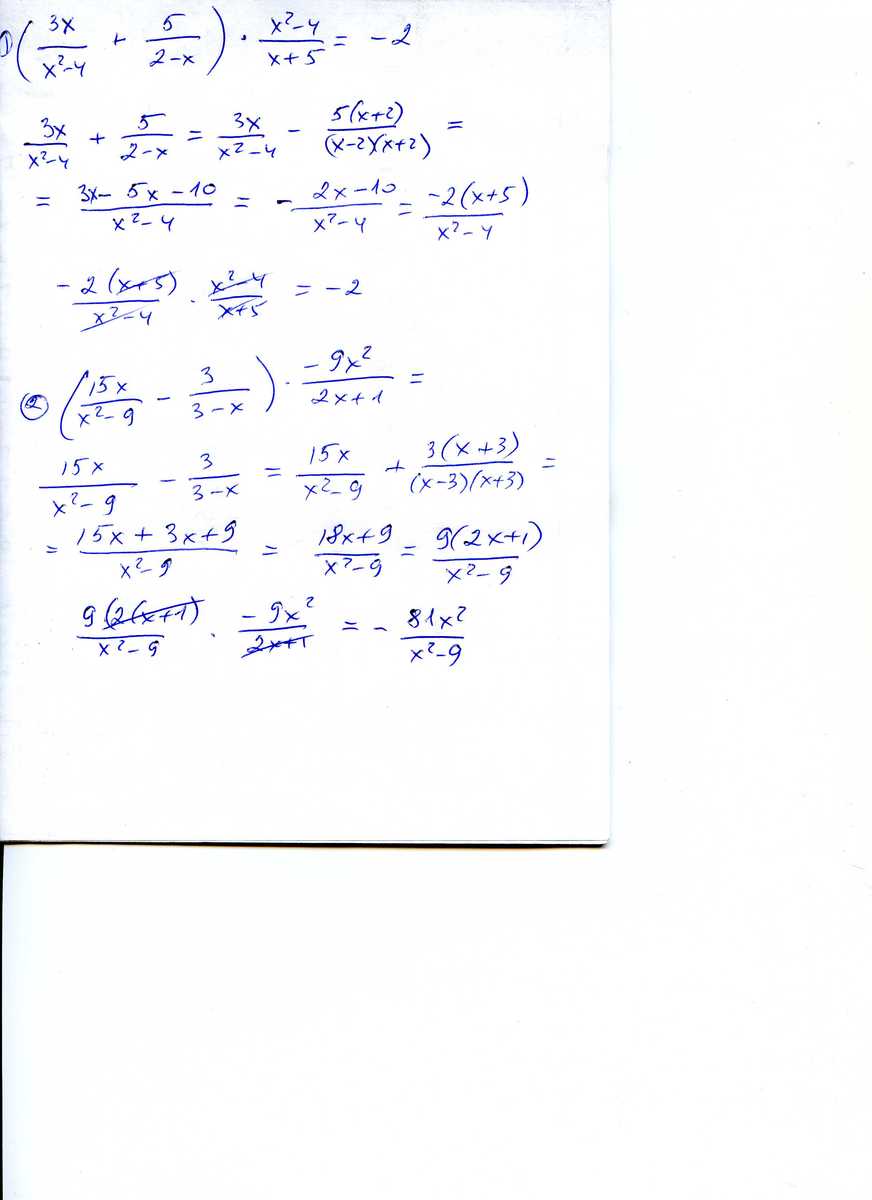 1) (3x/(x²-4) + 5/(2-x)) · (x²-4)/(x+5) = -2
3x/(x²-4) + 5/(2-x) = 3x/(x²-4) - 5(x+2)/((x-2)(x+2)) =
= (3x - 5x - 10)/(x²-4) = (-2x-10)/(x²-4) = -2(x+5)/(x²-4)
-2(x+5)/(x²-4) · (x²-4)/(x+5) = -2
② (15x/(x²-9) - 3/(3-x)) · -9x²/(2x+1) =
15x/(x²-9) - 3/(3-x) = 15x/(x²-9) + 3(x+3)/((x-3)(x+3)) =
= (15x + 3x + 9)/(x²-9) = (18x+9)/(x²-9) = 9(2x+1)/(x²-9)
9(2(x+1)/(x²-9) · -9x²/(2x+1) = - 81x²/(x²-9)